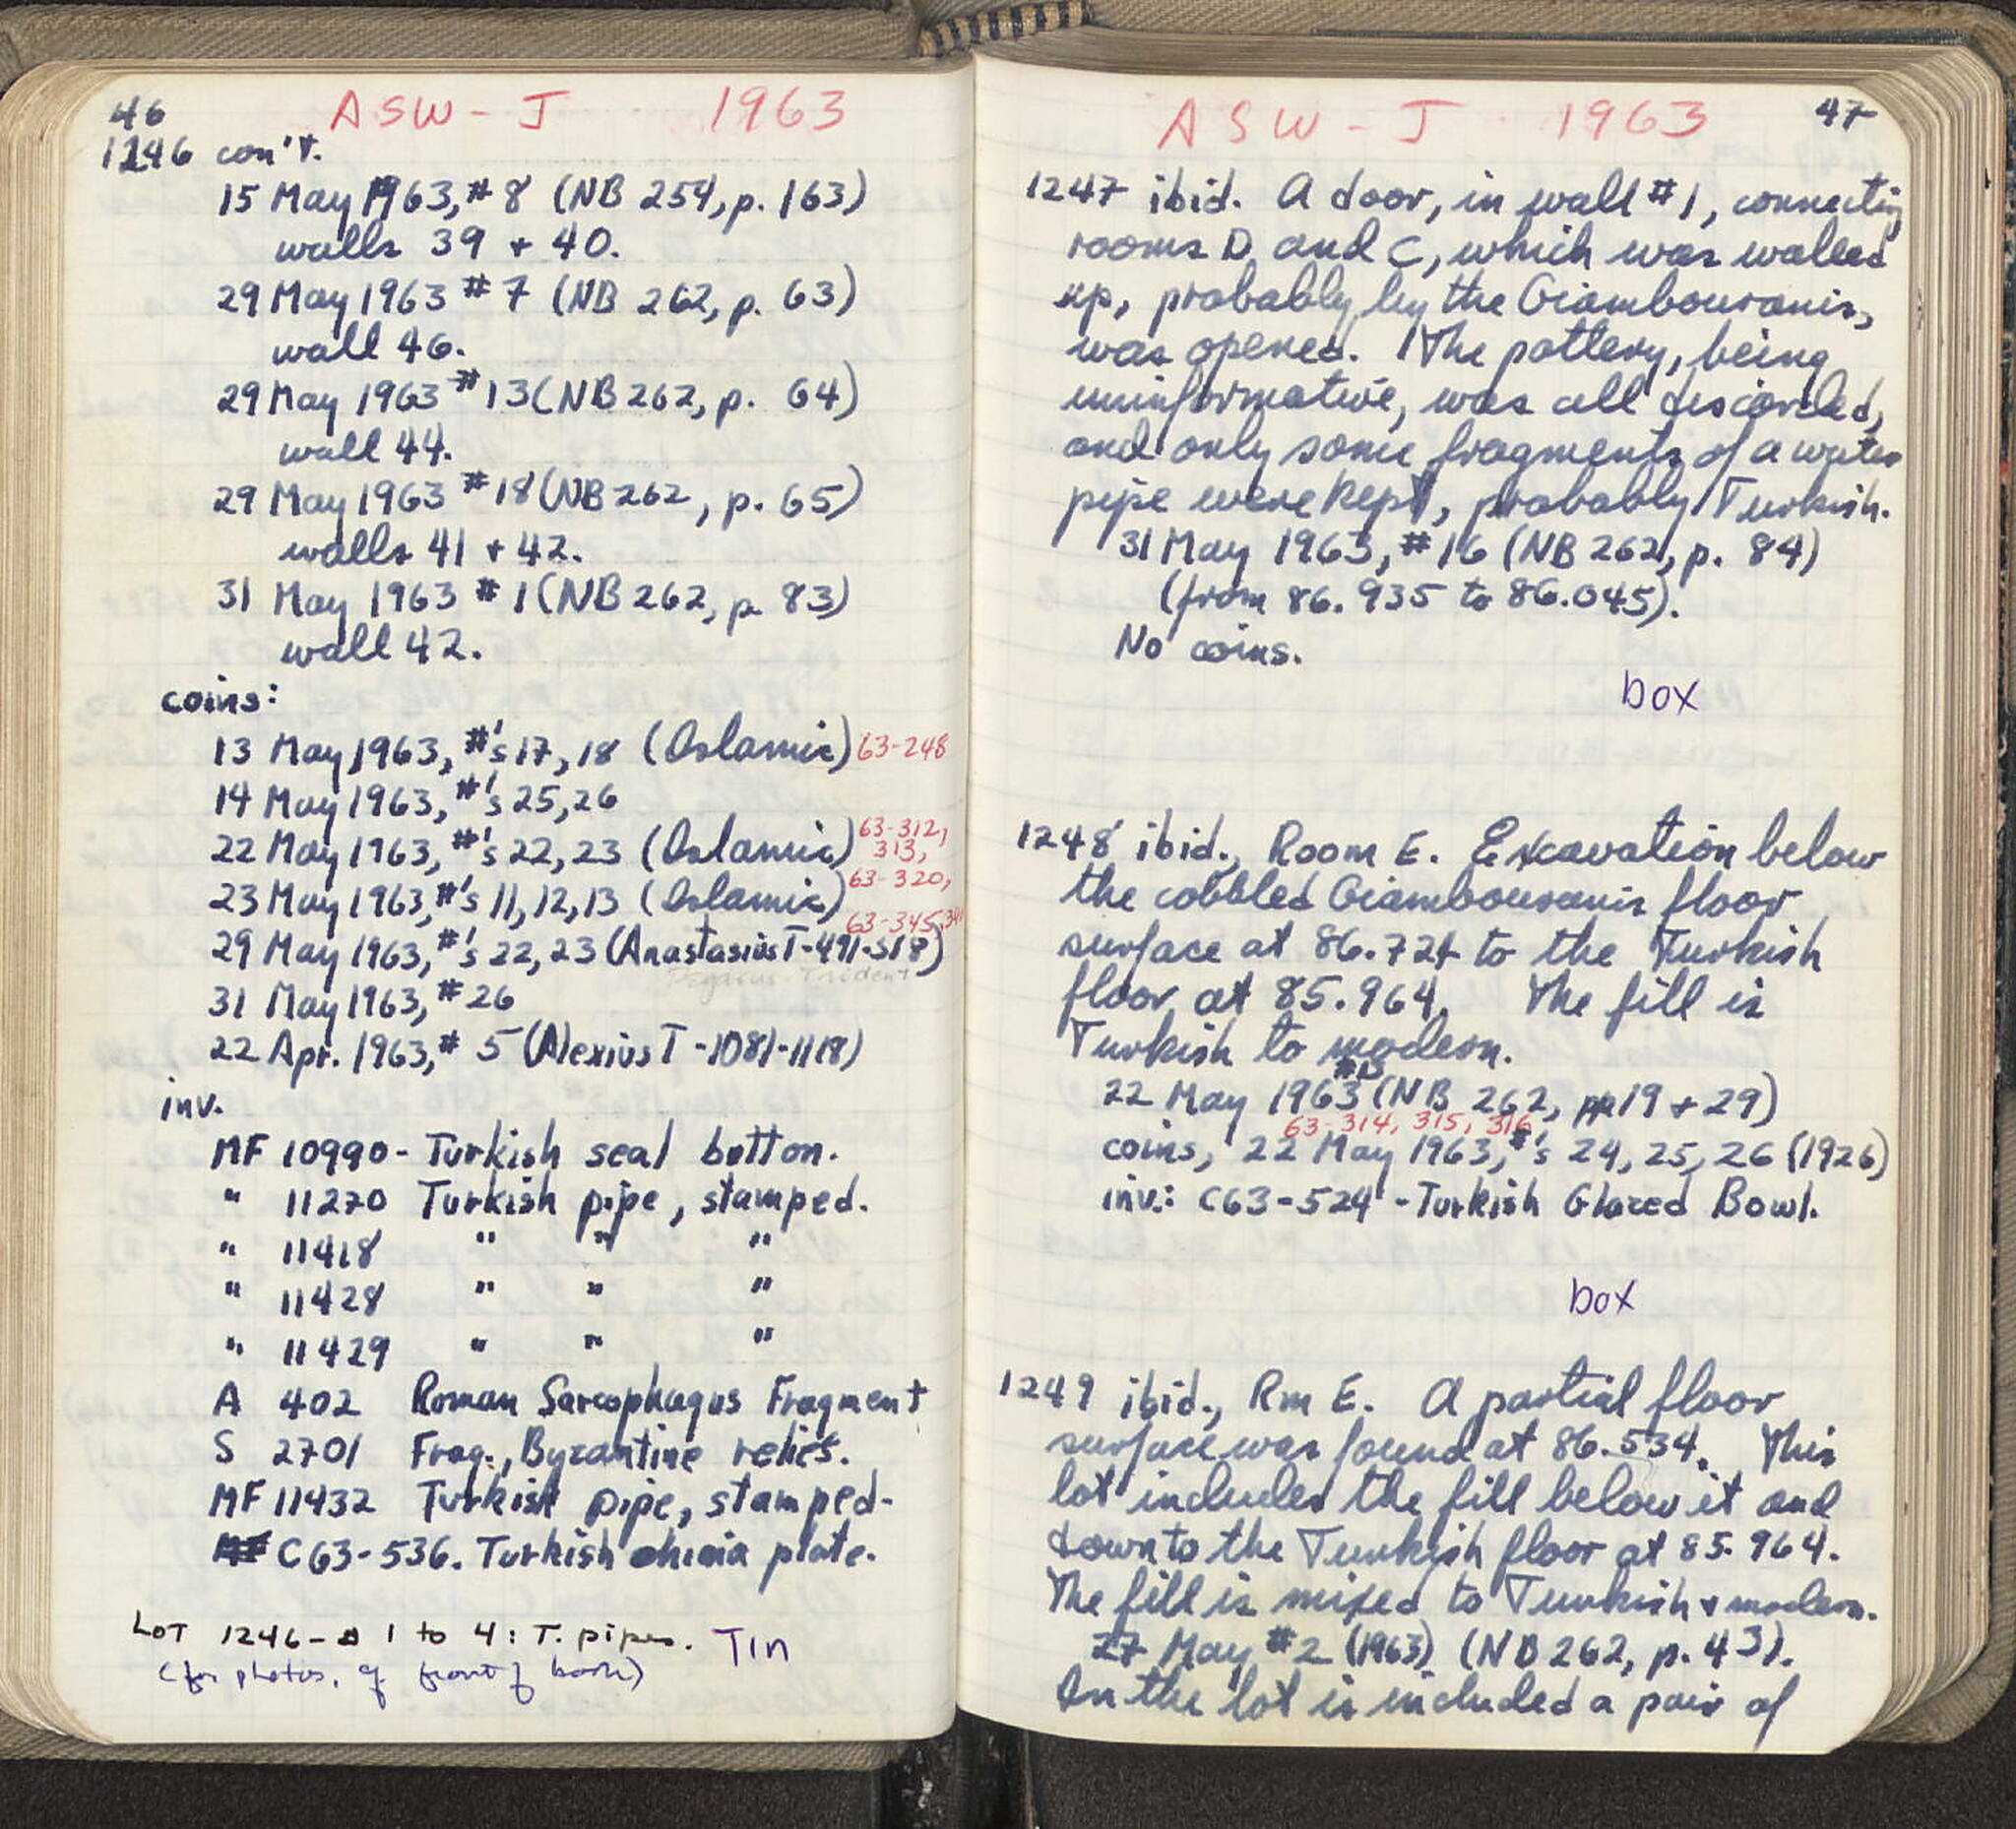 46 ASW - J 1963
1246 con't.
15 May 1963, #8 (NB 254, p. 163)
walls 39 + 40.
29 May 1963 #7 (NB 262, p. 63)
wall 46.
29 May 1963 #13 (NB 262, p. 64)
wall 44.
29 May 1963 #18 (NB 262, p. 65)
walls 41 + 42.
31 May 1963 #1 (NB 262, p. 83)
wall 42.
coins:
13 May 1963, #'s 17, 18 (Islamic) 63-248
14 May 1963, #'s 25, 26
22 May 1963, #'s 22, 23 (Islamic) 63-312, 313,
23 May 1963, #'s 11, 12, 13 (Islamic) 63-320,
63-345,
29 May 1963, #'s 22, 23 (Anastasius I - 491-518)
Pegasus - Trident
31 May 1963, #26
22 Apr. 1963, # 5 (Alexius I - 1081-1118)
inv.
MF 10990 - Turkish seal button.
" 11270 Turkish pipe, stamped.
" 11418 " " "
" 11428 " " "
" 11429 " " "
A 402 Roman Sarcophagus Fragment
S 2701 Frag., Byzantine relief.
MF 11432 Turkish pipe, stamped.
C63-536. Turkish china plate.
LOT 1246- 1 to 4: T. pipes. TIN
(for photos, cf front of book)
ASW - J 1963 47
1247 ibid. A door, in wall #1, connecting
rooms D and C, which was walled
up, probably by the Giambouranis,
was opened. The pottery, being
uninformative, was all discarded,
and only some fragments of a water
pipe were kept, probably Turkish.
31 May 1963, #16 (NB 262, p. 84)
(from 86.935 to 86.045).
No coins.
box
1248 ibid., Room E. Excavation below
the cobbled Giambouranis floor
surface at 86.724 to the Turkish
floor at 85.964. The fill is
Turkish to modern.
22 May 1963 (NB 262, pp 19 + 29)
63-314, 315, 316
coins, 22 May 1963, #'s 24, 25, 26 (1926)
inv.: C63-524 - Turkish Glazed Bowl.
box
1249 ibid., Rm E. A partial floor
surface was found at 86.534. This
lot includes the fill below it and
down to the Turkish floor at 85.964.
The fill is mixed to Turkish + modern.
27 May #2 (1963) (NB 262, p. 43).
In the lot is included a pair of